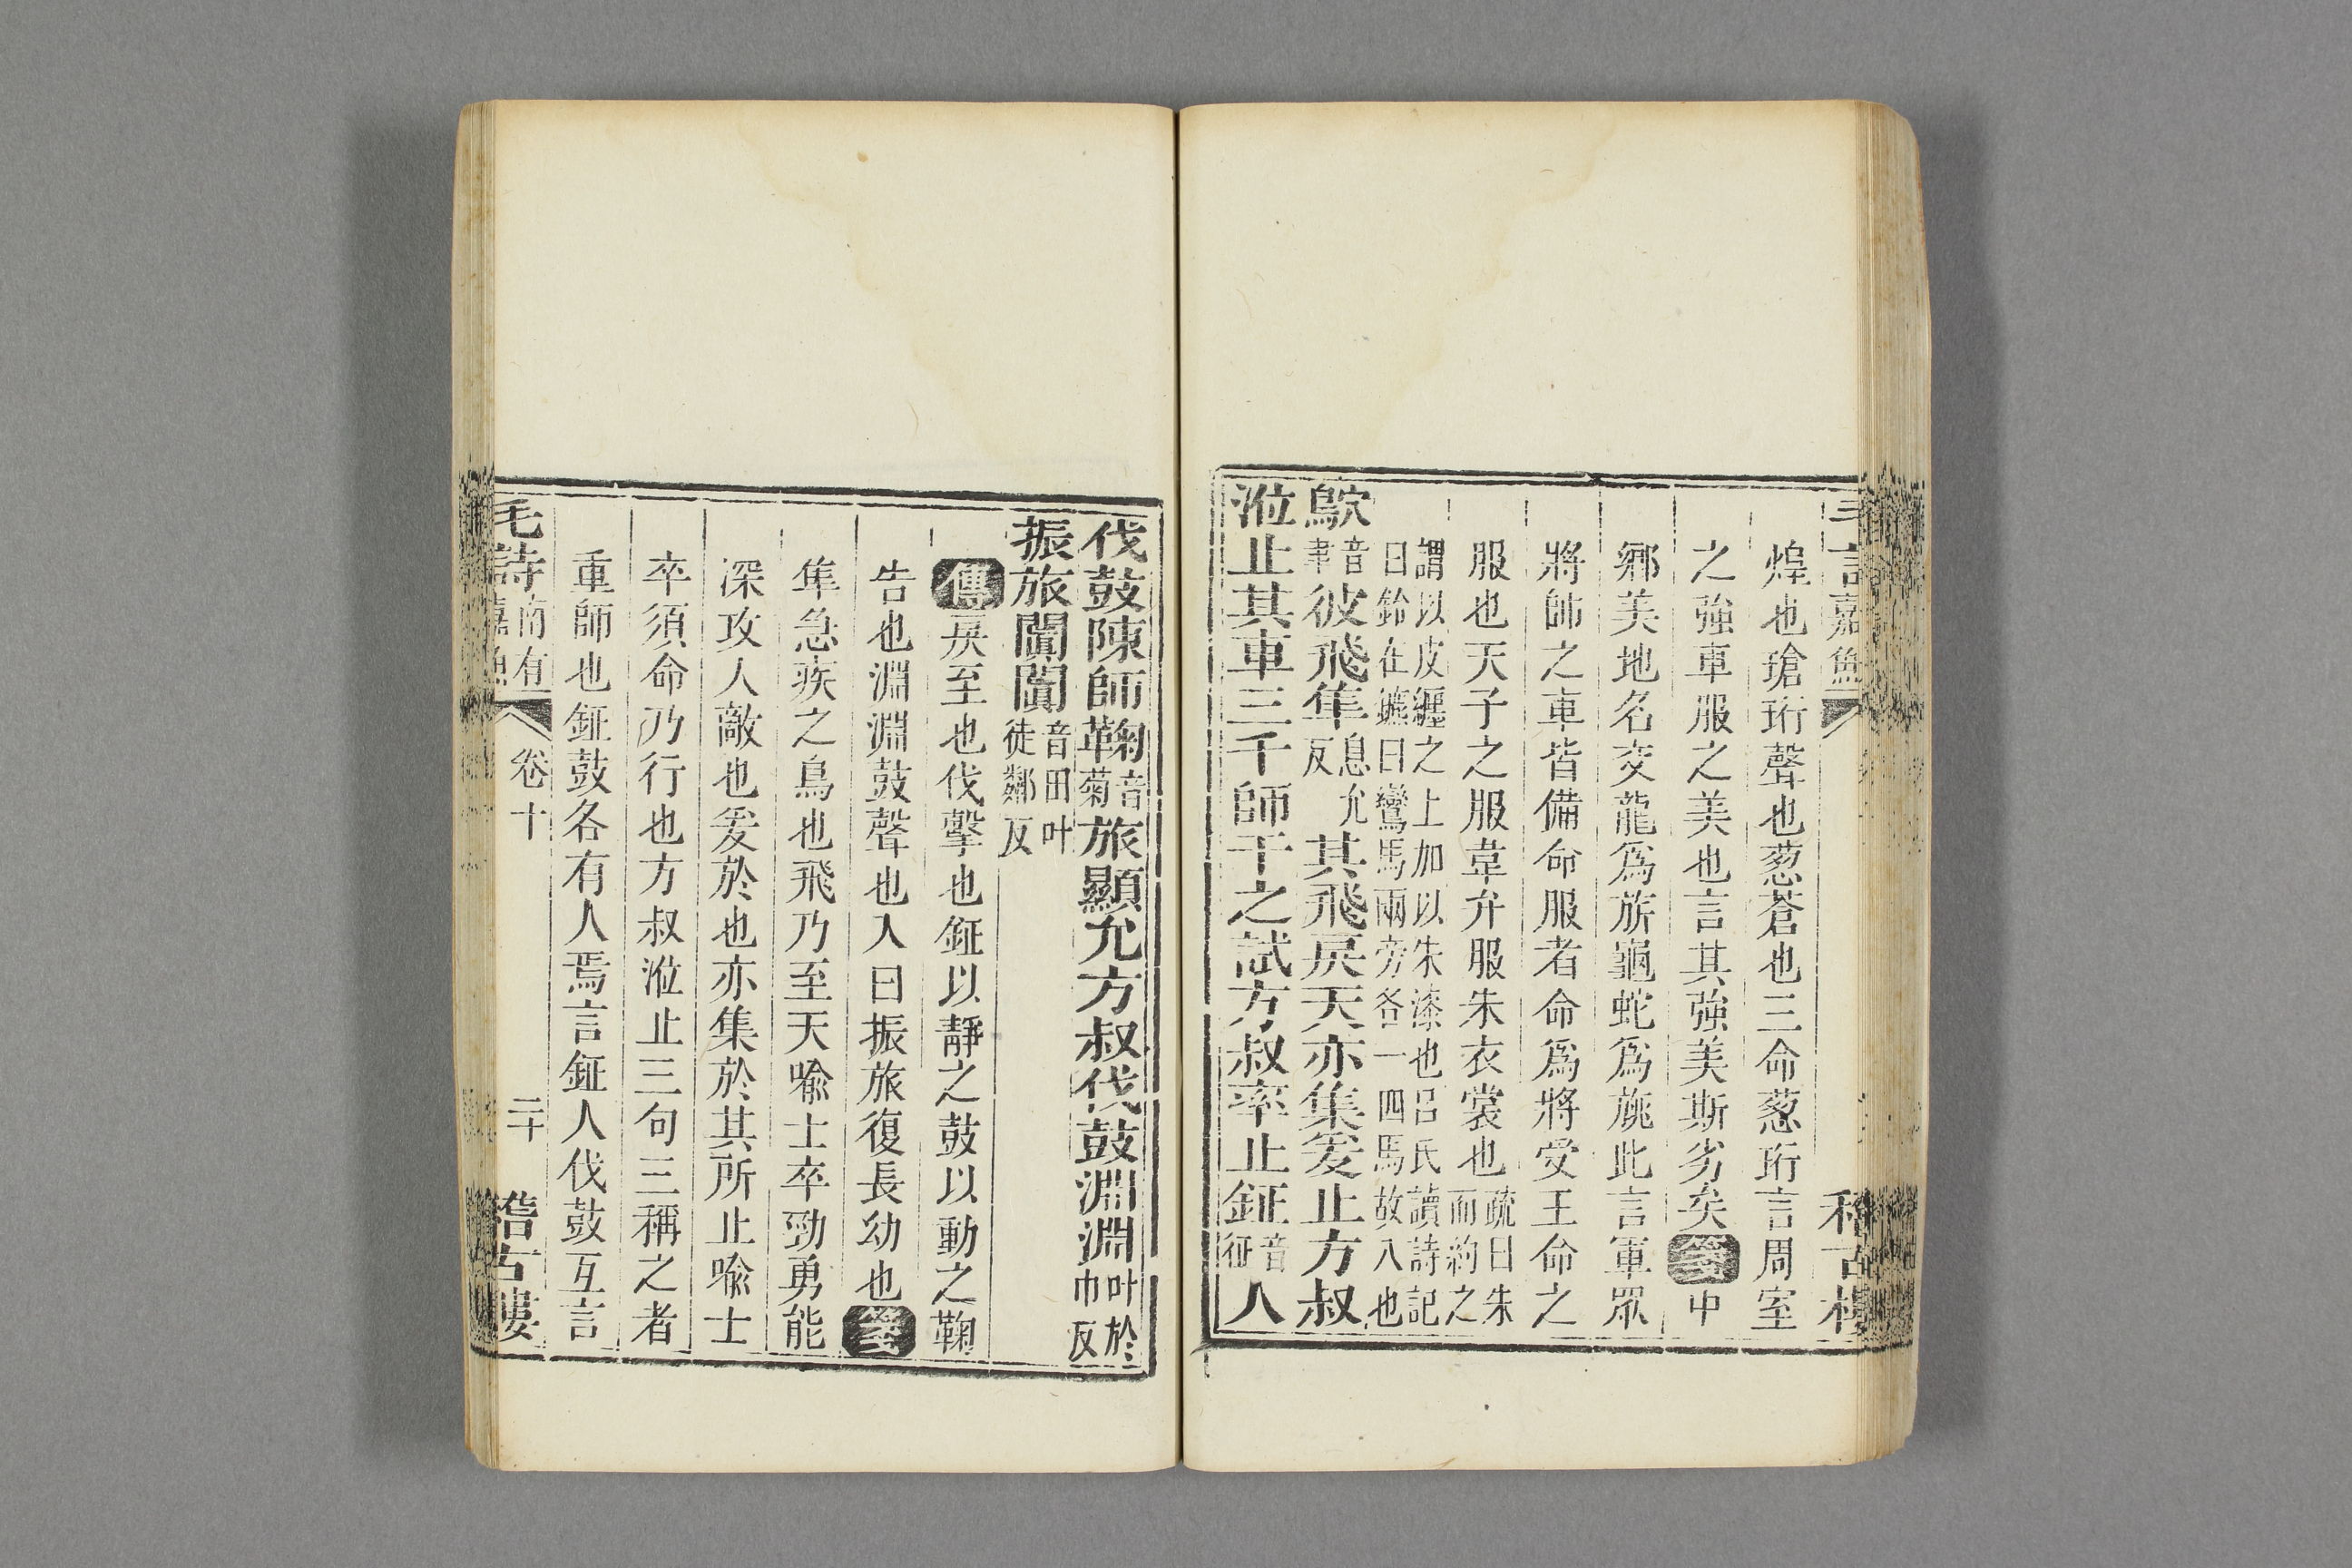 煌也瑲珩聲也葱蒼也三命葱珩言周室
之強車服之美也言其強美斯劣矣箋中
鄉美地名交龍爲旂龜蛇爲旐此言軍眾
將帥之車皆備命服者命爲將受王命之
服也天子之服韋弁服朱衣裳也疏曰朱而約之
謂以皮纒之上加以朱漆也呂氏讀詩記
曰鈴在鑣曰鸞馬兩旁各一四馬故八也
鴥音聿彼飛隼息允反其飛戾天亦集爰止方叔
涖止其車三千師干之試方叔率止鉦音征人
伐鼓陳師鞠音菊旅顯允方叔伐鼓淵淵叶於巾反
振旅闐闐音田叶徒鄰反
傳戾至也伐擊也鉦以靜之鼓以動之鞠
告也淵淵鼓聲也入曰振旅復長幼也箋
隼急疾之鳥也飛乃至天喻士卒勁勇能
深攻人敵也爰於也亦集於其所止喻士
卒須命乃行也方叔涖止三句三稱之者
重師也鉦鼓各有人焉言鉦人伐鼓互言
毛詩南有嘉魚 卷十 二十 稽古樓